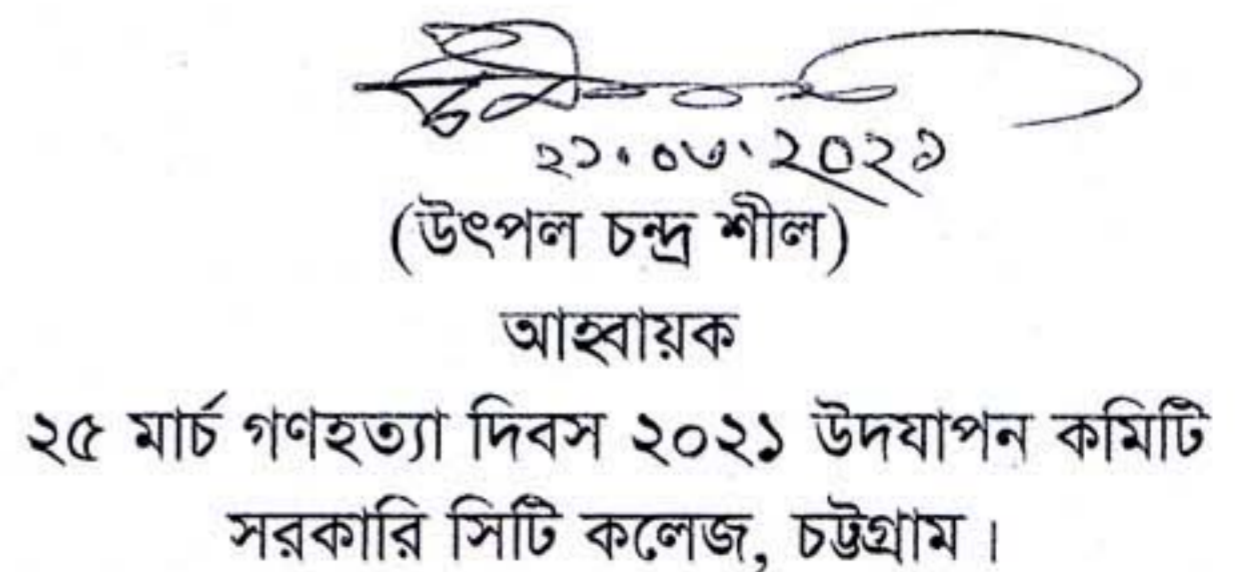 ২১.০৩.২০২১
(উৎপল চন্দ্র শীল)
আহ্বায়ক
২৫ মার্চ গণহত্যা দিবস ২০২১ উদযাপন কমিটি
সরকারি সিটি কলেজ, চট্টগ্রাম।